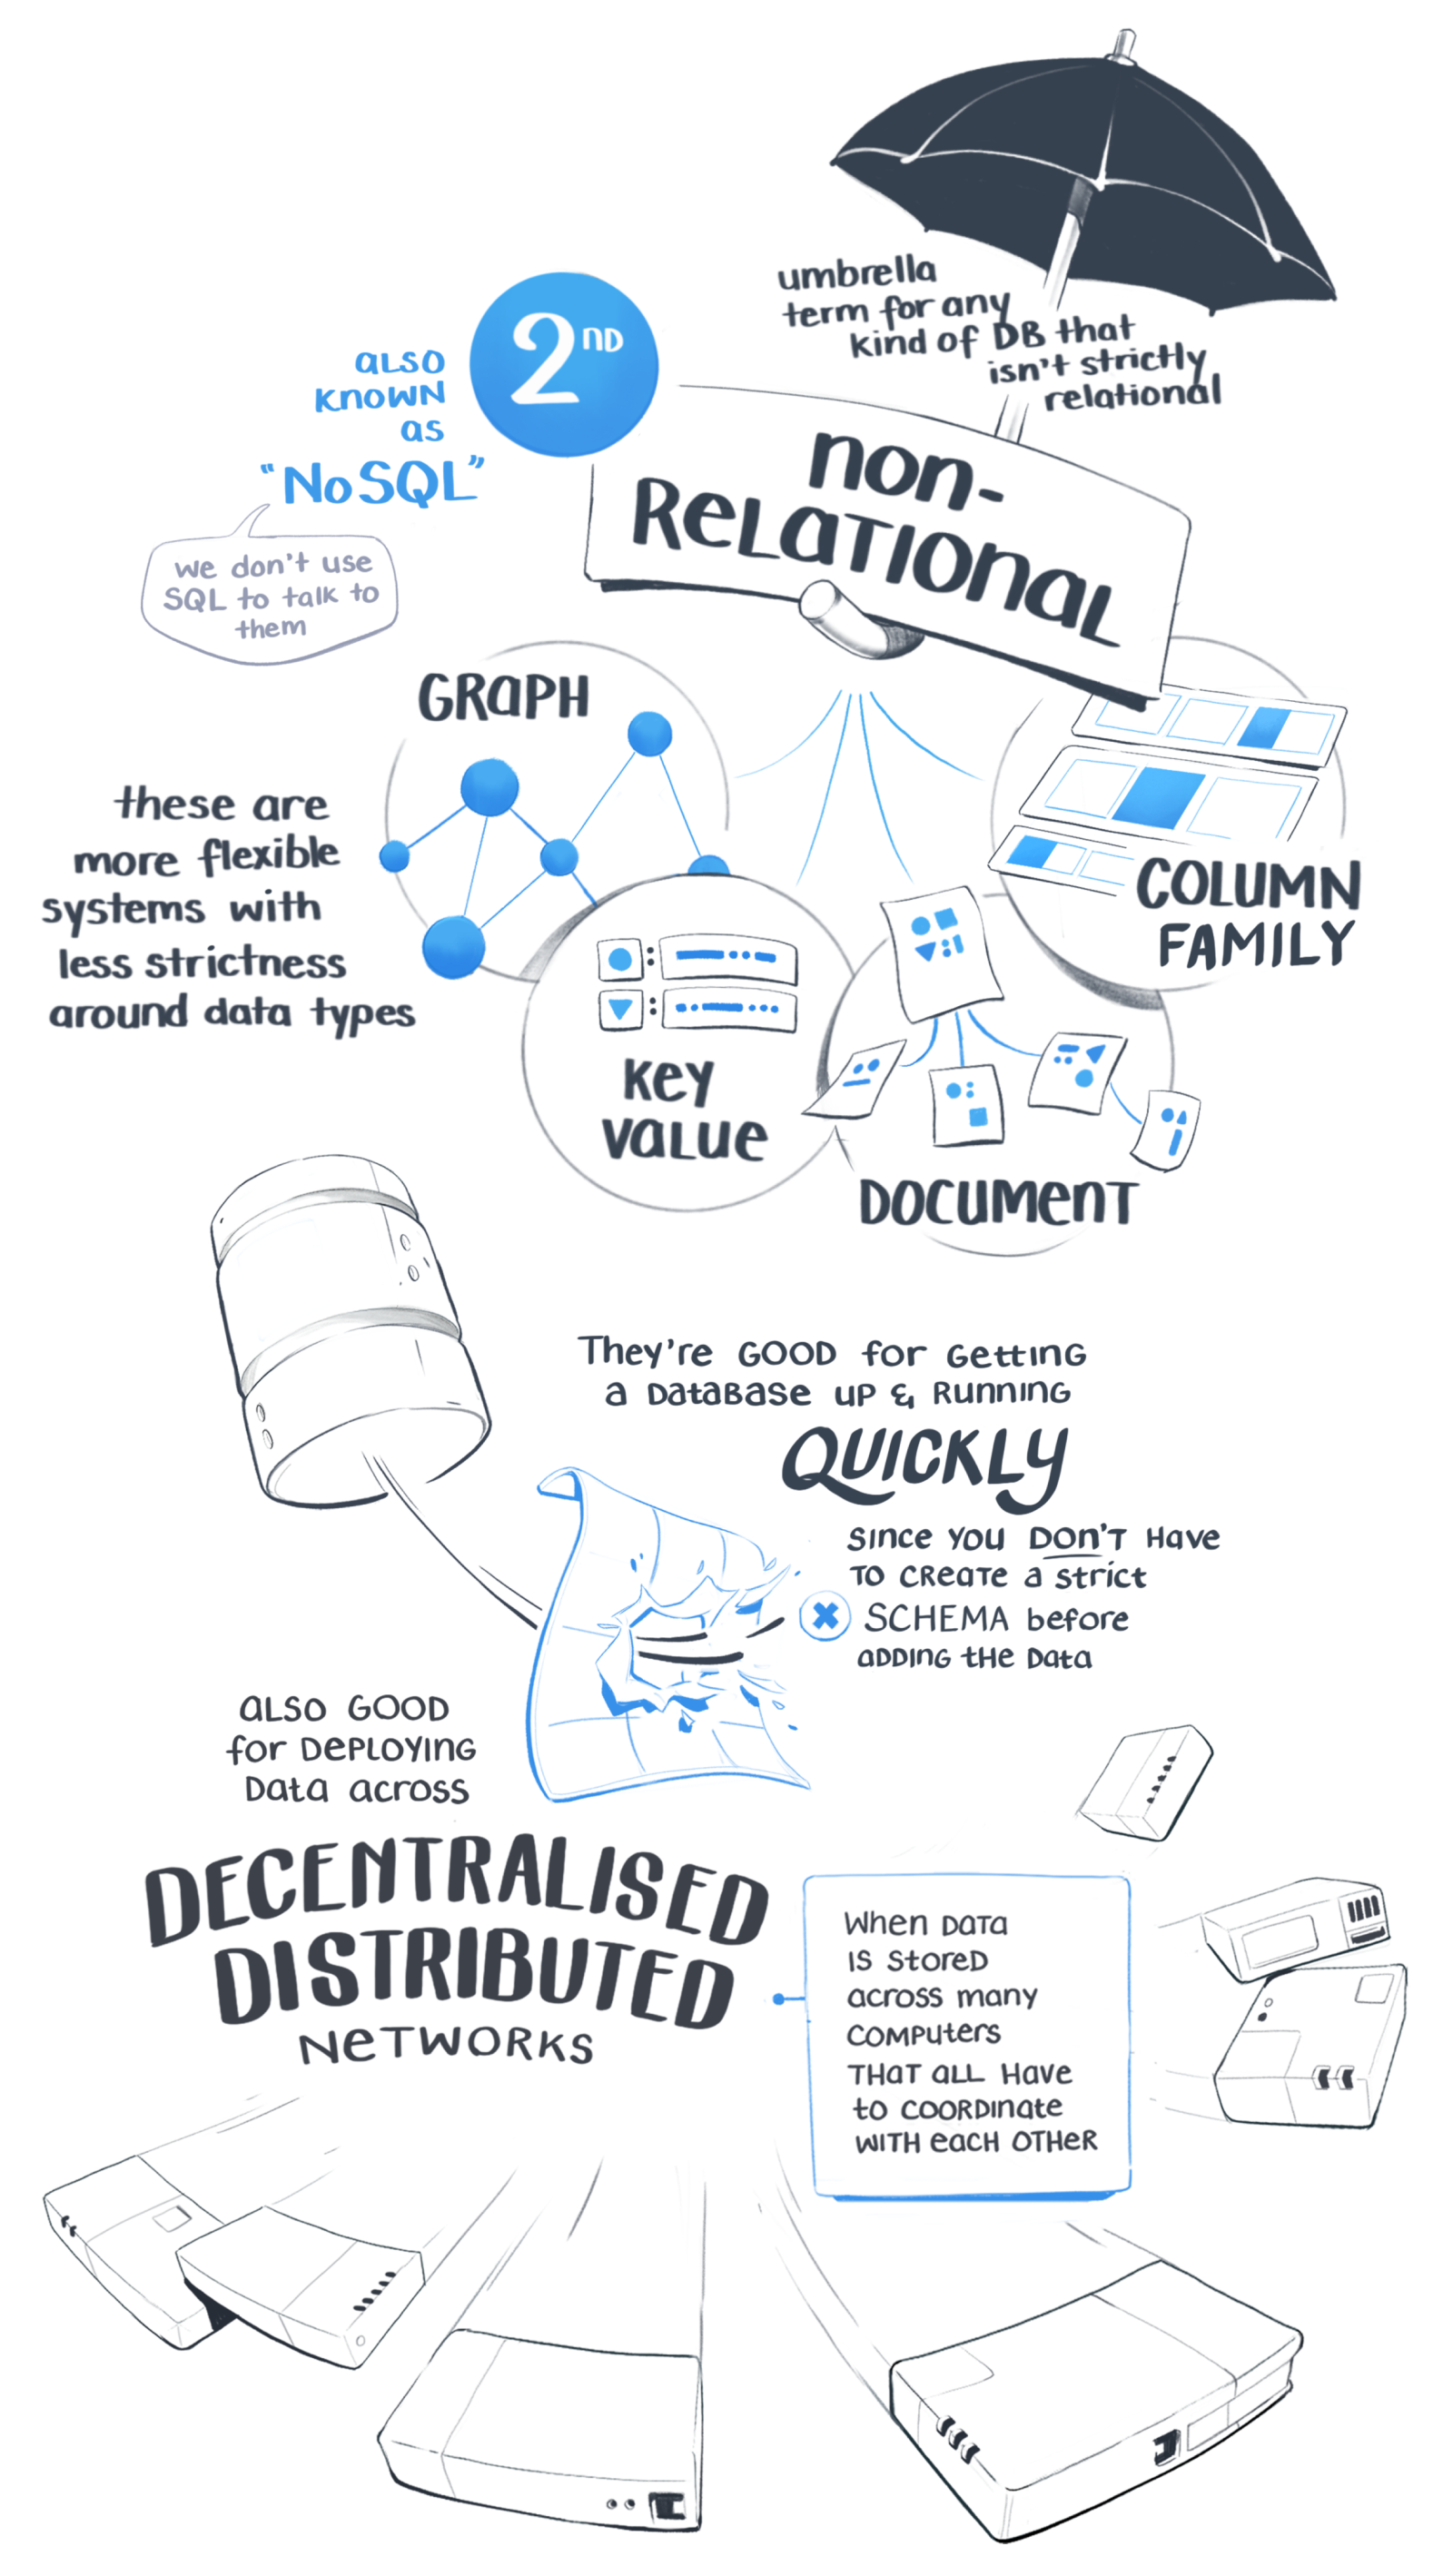 umbrella
term for any
kind of DB that
isn't strictly
relational
2ND
also
known
as
"NoSQL"
we don't use
SQL to talk to
them
non-
Relational
GRAPH
these are
more flexible
systems with
less strictness
around data types
COLUMN
FAMILY
Key
Value
DOCUMENT
They're GOOD for Getting
a Database up & Running
QUICKLY
since you DON'T Have
to create a strict
SCHEMA before
adding the Data
also GOOD
for Deploying
Data across
DECENTRALISED
DISTRIBUTED
NETWORKS
When Data
is stored
across many
computers
that all have
to coordinate
with each other